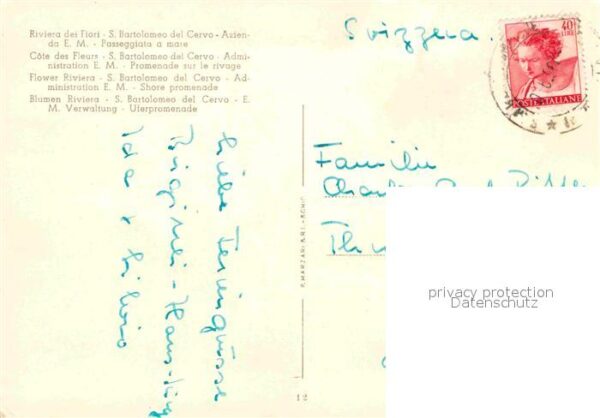 Riviera dei Fiori - S. Bartolomeo del Cervo - Azien-
da E. M. - Passeggiata a mare
Côte des Fleurs - S. Bartolomeo del Cervo - Admi-
nistration E. M. - Promenade sur le rivage
Flower Riviera - S. Bartolomeo del Cervo - Ad-
ministration E. M. - Shore promenade
Blumen Riviera - S. Bartolomeo del Cervo - E.
M. Verwaltung - Uferpromenade
Svizzera
40
LIRE
POSTE ITALIANE
Familie
Th
Liebe Feriengrüsse
Ida + Silvio
12
privacy protection
Datenschutz